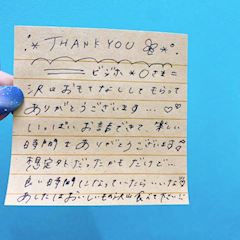 THANK YOU
ビジホ*Oさま
沢山おもてなししてもらって
ありがとうございます…♡
いっぱいお話できて、楽しい
時間をありがとうございます
想定外だったかもだけど…
良い時間になっていたらいいな
あしたはおいしいもの沢山食べて下さい